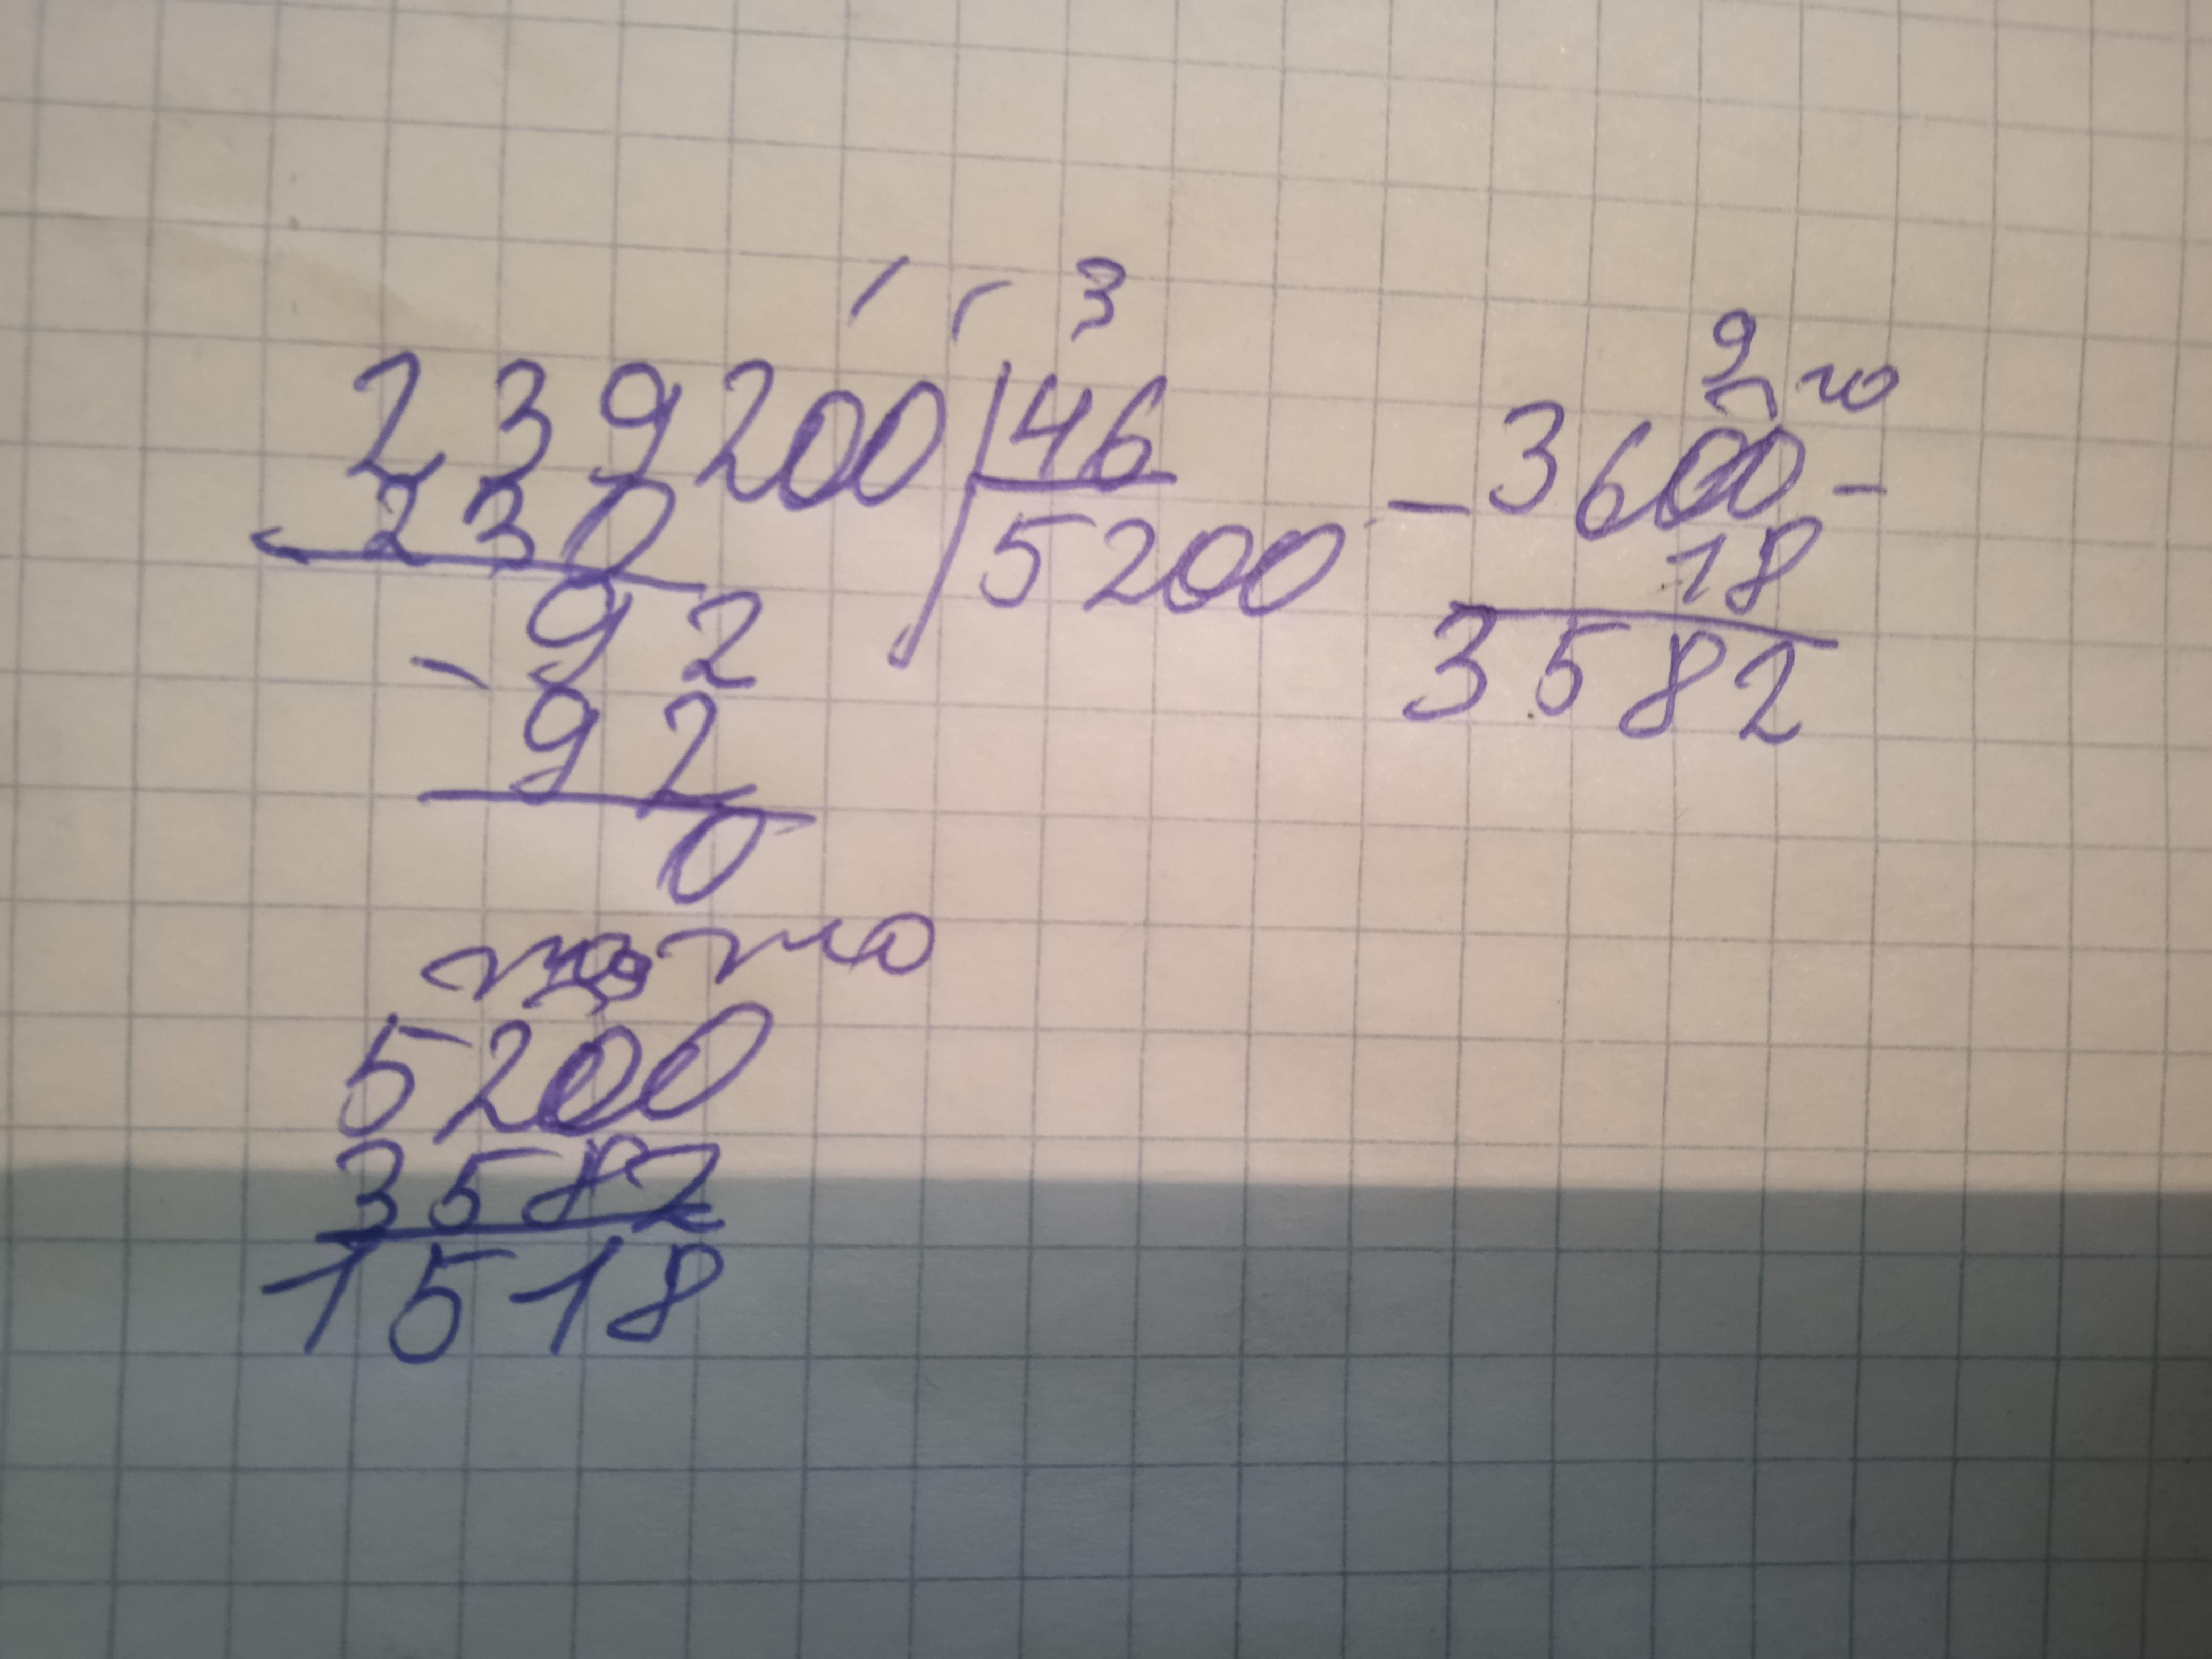 3
239200 46
230 5200
92
- 92
0
9 10
- 3600 -
18
3582
10
5200
3582
1518